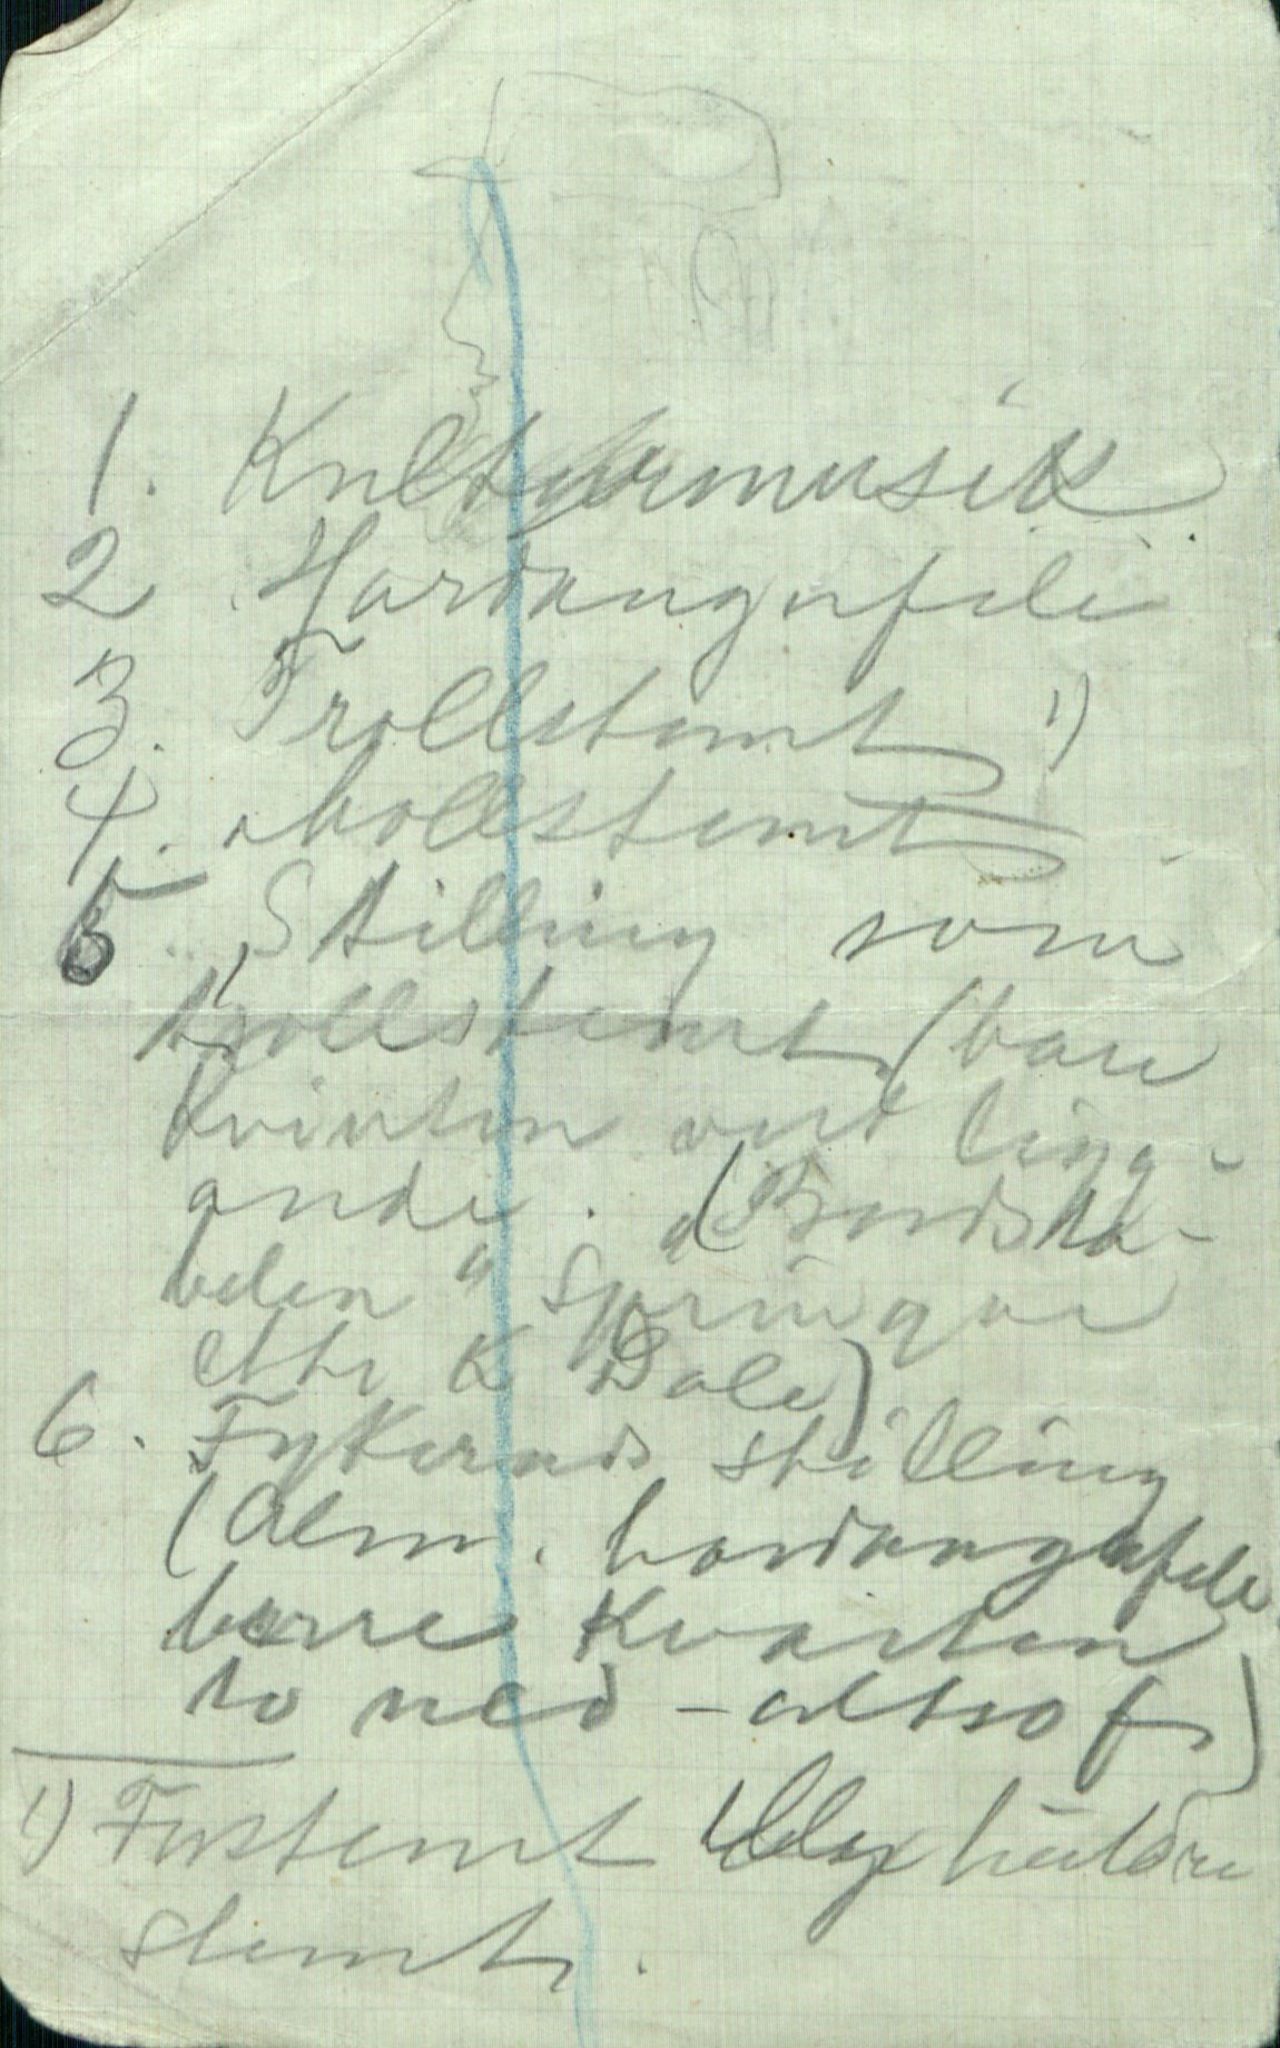 1. Kulturmusik
2 Hardangerfele
3. Trollstemt 1)
4. Mollstemt
5 Stilling som
trollstemt (bare
kvinten vert ligg-
ande. (Bordsta-
belen" Springar
etter K Dale)
6. Fykeruds stilling
(Alm. hardangerfele
berre Kvarten
to ned - altso f.)
1) Forstemt huldre
stemt.